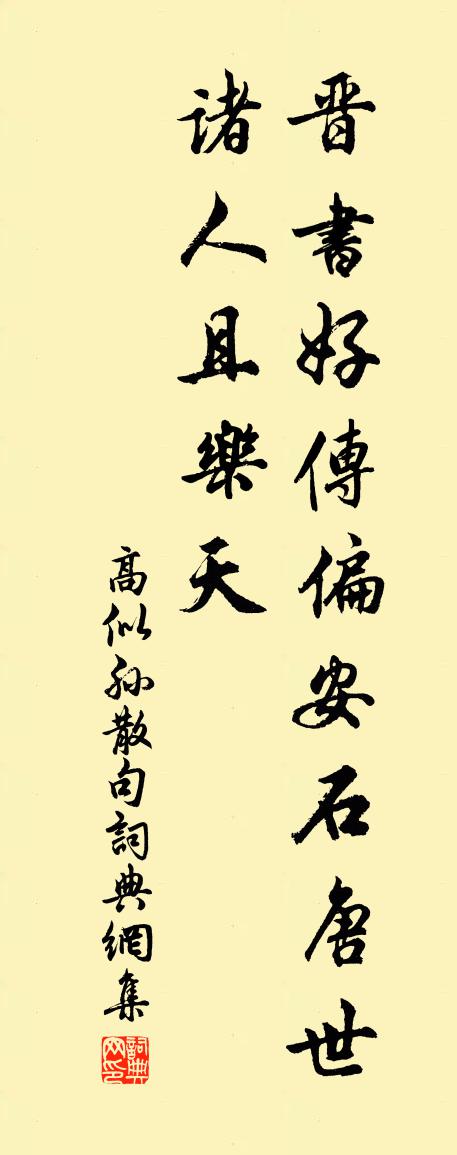 晋書好傳偏安石唐世
諸人且樂天
高似孙散句詞典網集
詞典网印